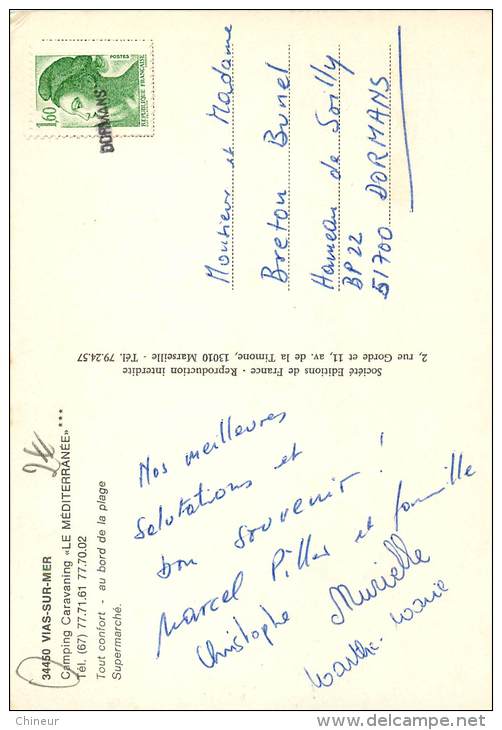 34450 VIAS-SUR-MER
Camping Caravaning «LE MÉDITERRANÉE» ***
Tél. (67) 77.71.61 77.70.02
Tout confort - au bord de la plage
Supermarché.
2€
Nos meilleures
Salutations et
bon souvenir !
Marcel Piller et famille
Christophe Murielle
Marthe-Marie
Société Editions de France - Reproduction interdite
2, rue Gorde et 11, av. de la Timone, 13010 Marseille - Tél. 79.24.57
1,60
POSTES
REPUBLIQUE FRANÇAISE
DORMANS
Monsieur et Madame
Breton Bunel
Hameau de Soilly
BP 22
51700 DORMANS
Chineur
www.delcampe.net